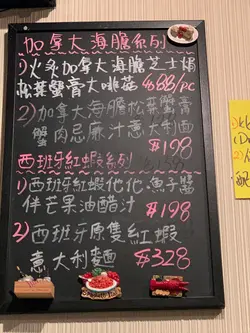 加拿大海膽系列
1)火炙加拿大海膽芝士焗
松葉蟹膏大啡菇 $68/pc
2)加拿大海膽松葉蟹膏
蟹肉忌廉汁意大利面
$198
西班牙紅蝦系列
1)西班牙紅蝦他他魚子醬
伴芒果油醋汁 $198
2)西班牙原隻紅蝦
意大利麵 $328